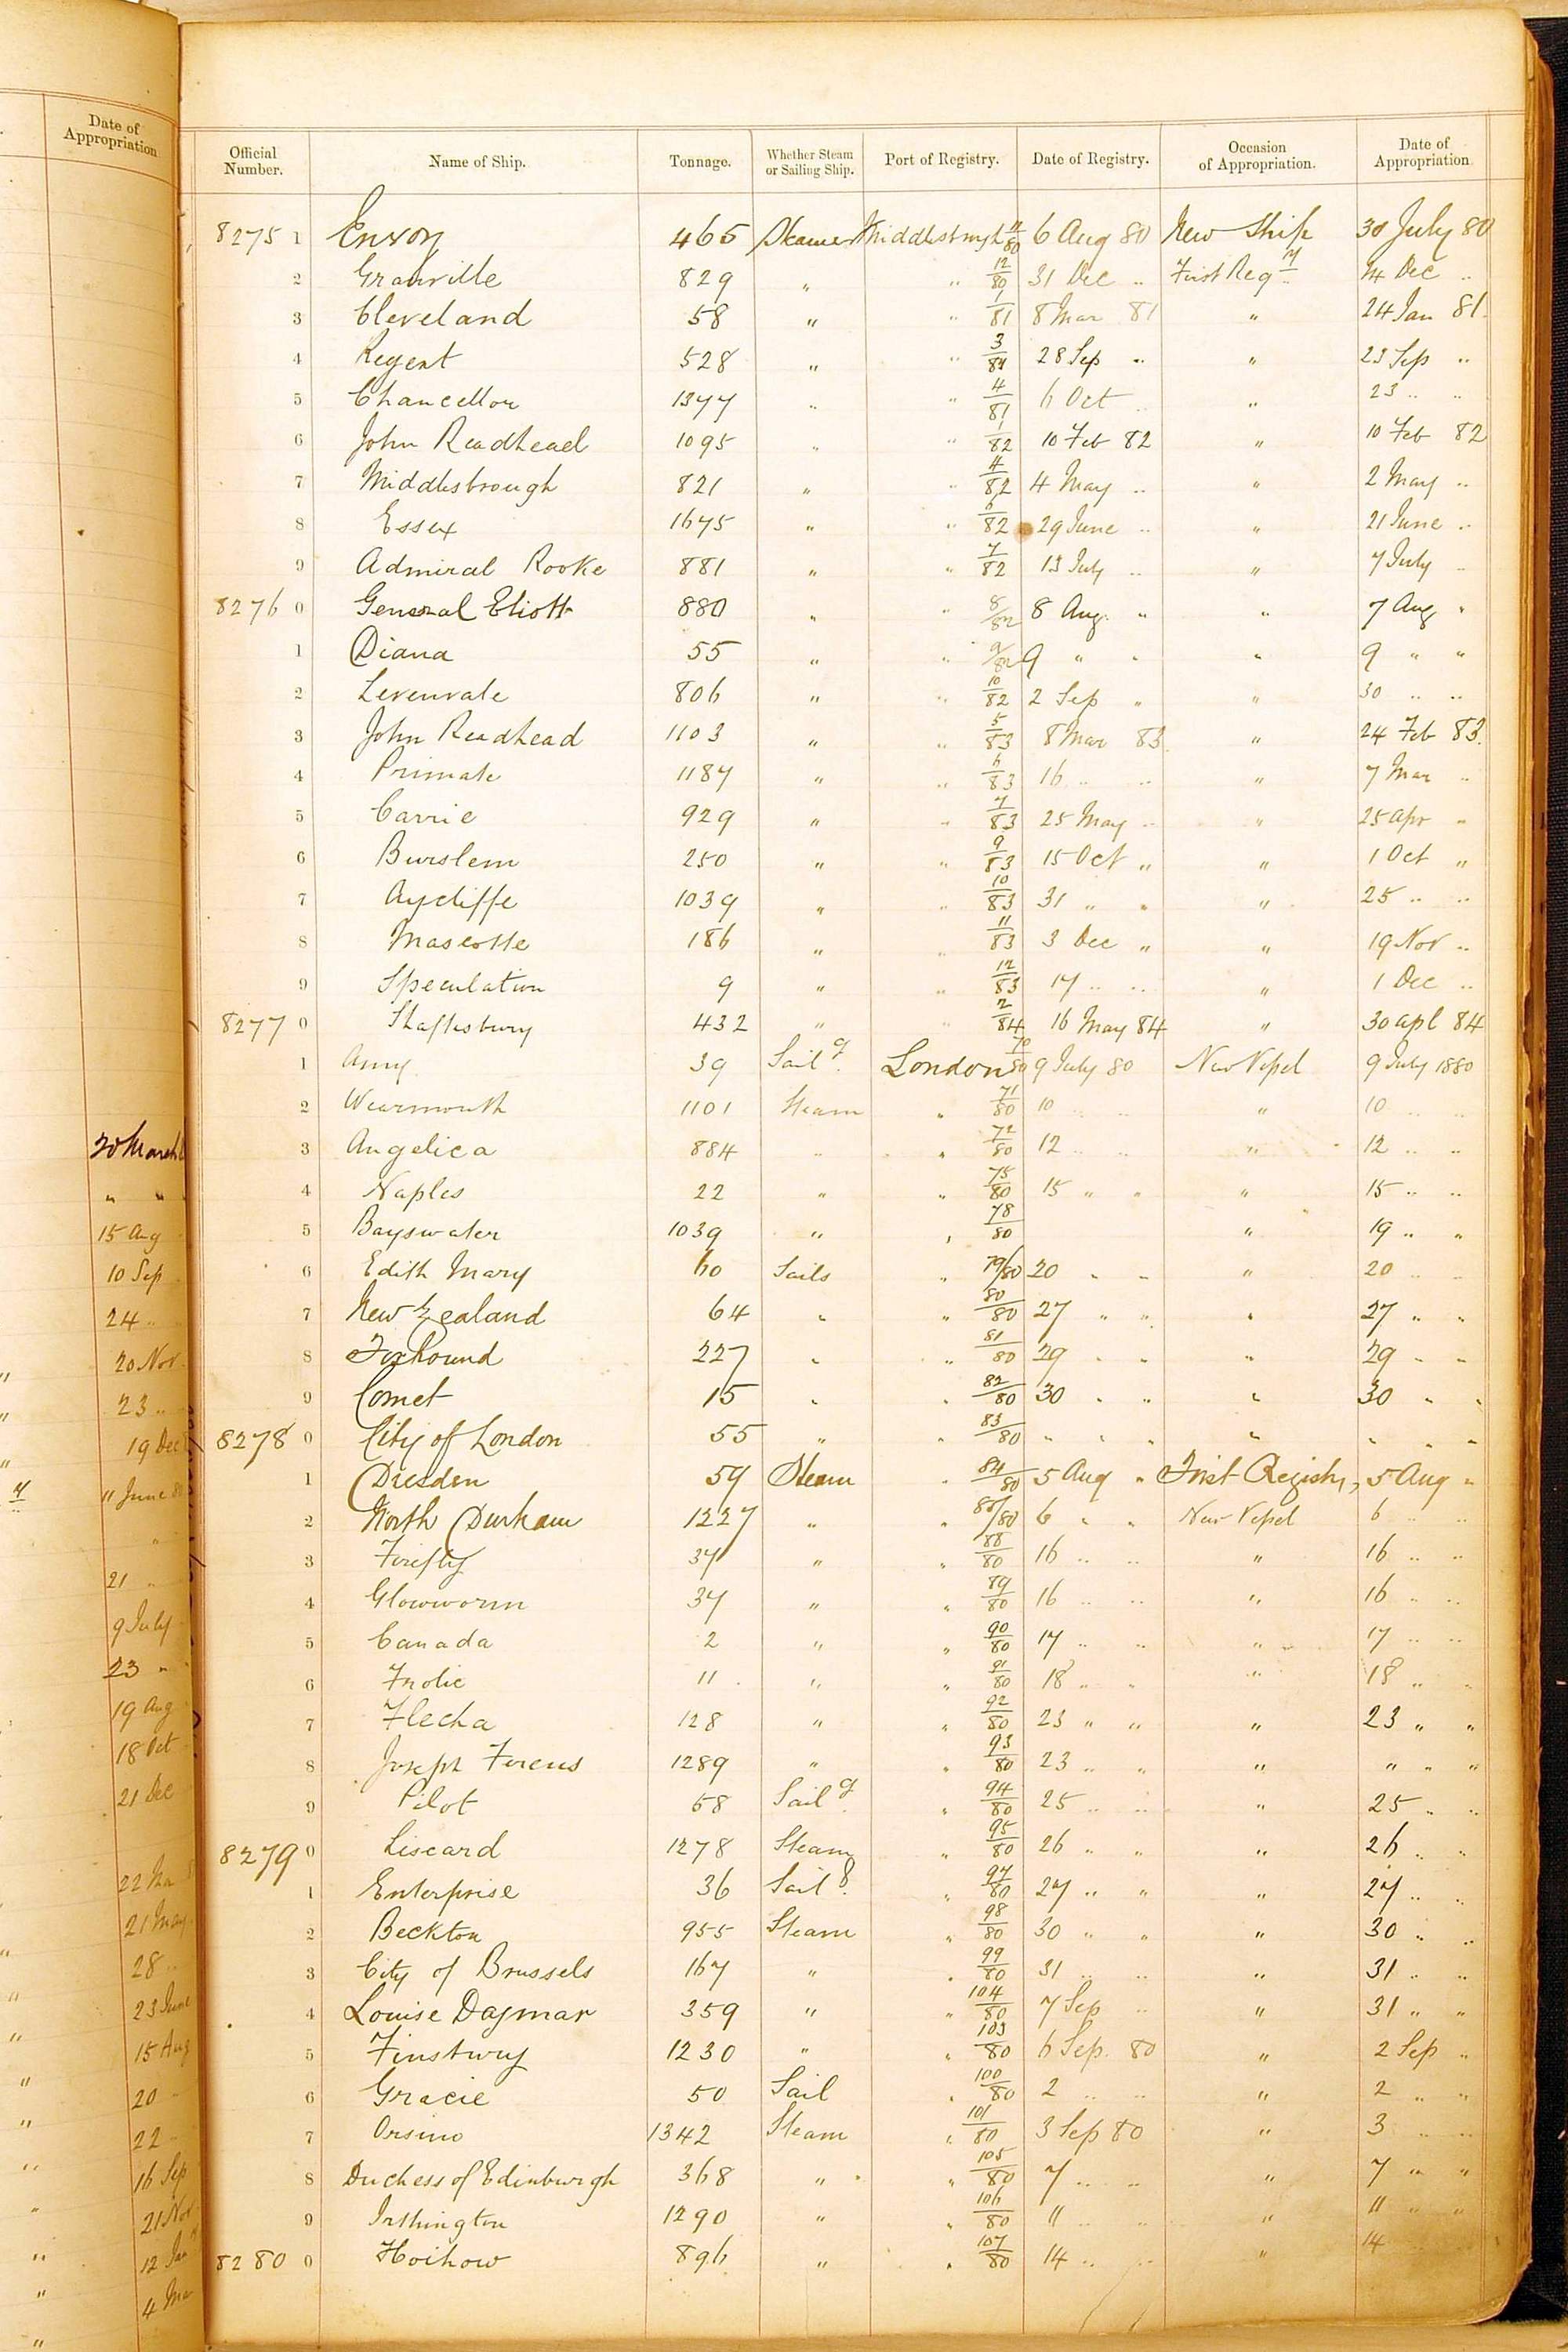 Date of
Appropriation
20 March
" "
15 Aug
10 Sep
24 "
20 Nov
23 "
19 Dec
11 June
"
21 "
9 July
23 "
19 Aug
18 Oct
21 Dec
22
21 May
28 "
23 June
15 Aug
20 "
22 "
16 Sep
21 Nov
12 Jan
4 Mar
Official Number. Name of Ship. Tonnage. Whether Steam or Sailing Ship. Port of Registry. Date of Registry. Occasion of Appropriation. Date of Appropriation
8275 1 465 Steamer Middlesbrough 11/80 6 Aug 80 New Ship 30 July 80
2 Granville 829 " " 12/80 31 Dec " First Reg y " 14 Dec "
3 Cleveland 58 " " 1/81 8 Mar 81 " 24 Jan 81
4 Regent 528 " " 3/81 28 Sep " " 23 Sep "
5 Chancellor 1377 " " 4/81 6 Oct " " 23 " "
6 John Readhead 1095 " " 1/82 10 Feb 82 " 10 Feb 82
7 Middlesbrough 821 " " 4/82 4 May " " 2 May "
8 Essex 1675 " " 6/82 29 June " " 21 June "
9 Admiral Rooke 881 " " 7/82 13 July " " 7 July "
8276 0 General Eliott 880 " " 8/82 8 Aug. " " 7 Aug "
1 Diana 55 " " 9/82 9 " " " 9 " "
2 Levenvale 806 " " 10/82 2 Sep " " 30 " "
3 John Readhead 1103 " " 5/83 8 Mar 83 " 24 Feb 83
4 Primate 1187 " " 6/83 16 " " " 7 Mar "
5 Carrie 929 " " 7/83 25 May " " 25 Apr "
6 Burslem 250 " " 9/83 15 Oct " " 1 Oct "
7 Aycliffe 1039 " " 10/83 31 " " " 25 " "
8 Mascotte 186 " " 11/83 3 Dec " " 19 Nov "
9 Speculation 9 " " 12/83 17 " " " 1 Dec "
8277 0 Shaftesbury 432 " " 2/84 16 May 84 " 30 Apl 84
1 Amy 39 Sailg London 70/80 9 July 80 New Vessel 9 July 1880
2 Wearmouth 1101 Steam " 71/80 10 " " " 10 " "
3 Angelica 884 " " 72/80 12 " " " 12 " "
4 Naples 22 " " 75/80 15 " " " 15 " "
5 Bayswater 1039 " " 78/80 " 19 " "
6 Edith Mary 60 Sails " 79/80 20 " " " 20 " "
7 New Zealand 64 " " 80/80 27 " " " 27 " "
8 Foxhound 227 " " 81/80 29 " " " 29 " "
9 Comet 15 " " 82/80 30 " " " 30 " "
8278 0 City of London 55 " " 83/80 " " " " " " "
1 Dresden 59 Steam " 84/80 5 Aug " First Registry 5 Aug "
2 North Durham 1227 " " 85/80 6 " " New Vessel 6 " "
3 Firefly 37 " " 88/80 16 " " " 16 " "
4 Glowworm 37 " " 89/80 16 " " " 16 " "
5 Canada 2 " " 90/80 17 " " " 17 " "
6 Frolic 11 " " 91/80 18 " " " 18 " "
7 Flecha 128 " " 92/80 23 " " " 23 " "
8 Joseph Ferens 1289 " " 93/80 23 " " " " " "
9 Pilot 68 Sailg " 94/80 25 " " " 25 " "
8279 0 Liscard 1278 Steam " 95/80 26 " " " 26 " "
1 Enterprise 36 Sailg " 97/80 27 " " " 27 " "
2 Beckton 955 Steam " 98/80 30 " " " 30 " "
3 City of Brussels 167 " " 99/80 31 " " " 31 " "
4 Louise Dagmar 359 " " 104/80 7 Sep " " 31 " "
5 Finsbury 1230 " " 103/80 6 Sep. 80 " 2 Sep "
6 Gracie 50 Sail " 100/80 2 " " " 2 " "
7 Orsino 1342 Steam " 101/80 3 Sep 80 " 3 " "
8 Duchess of Edinburgh 368 " " 105/80 7 " " " 7 " "
9 Irthington 1290 " " 106/80 11 " " " 11 " "
8280 0 Hoihow 896 " " 107/80 14 " " " 14